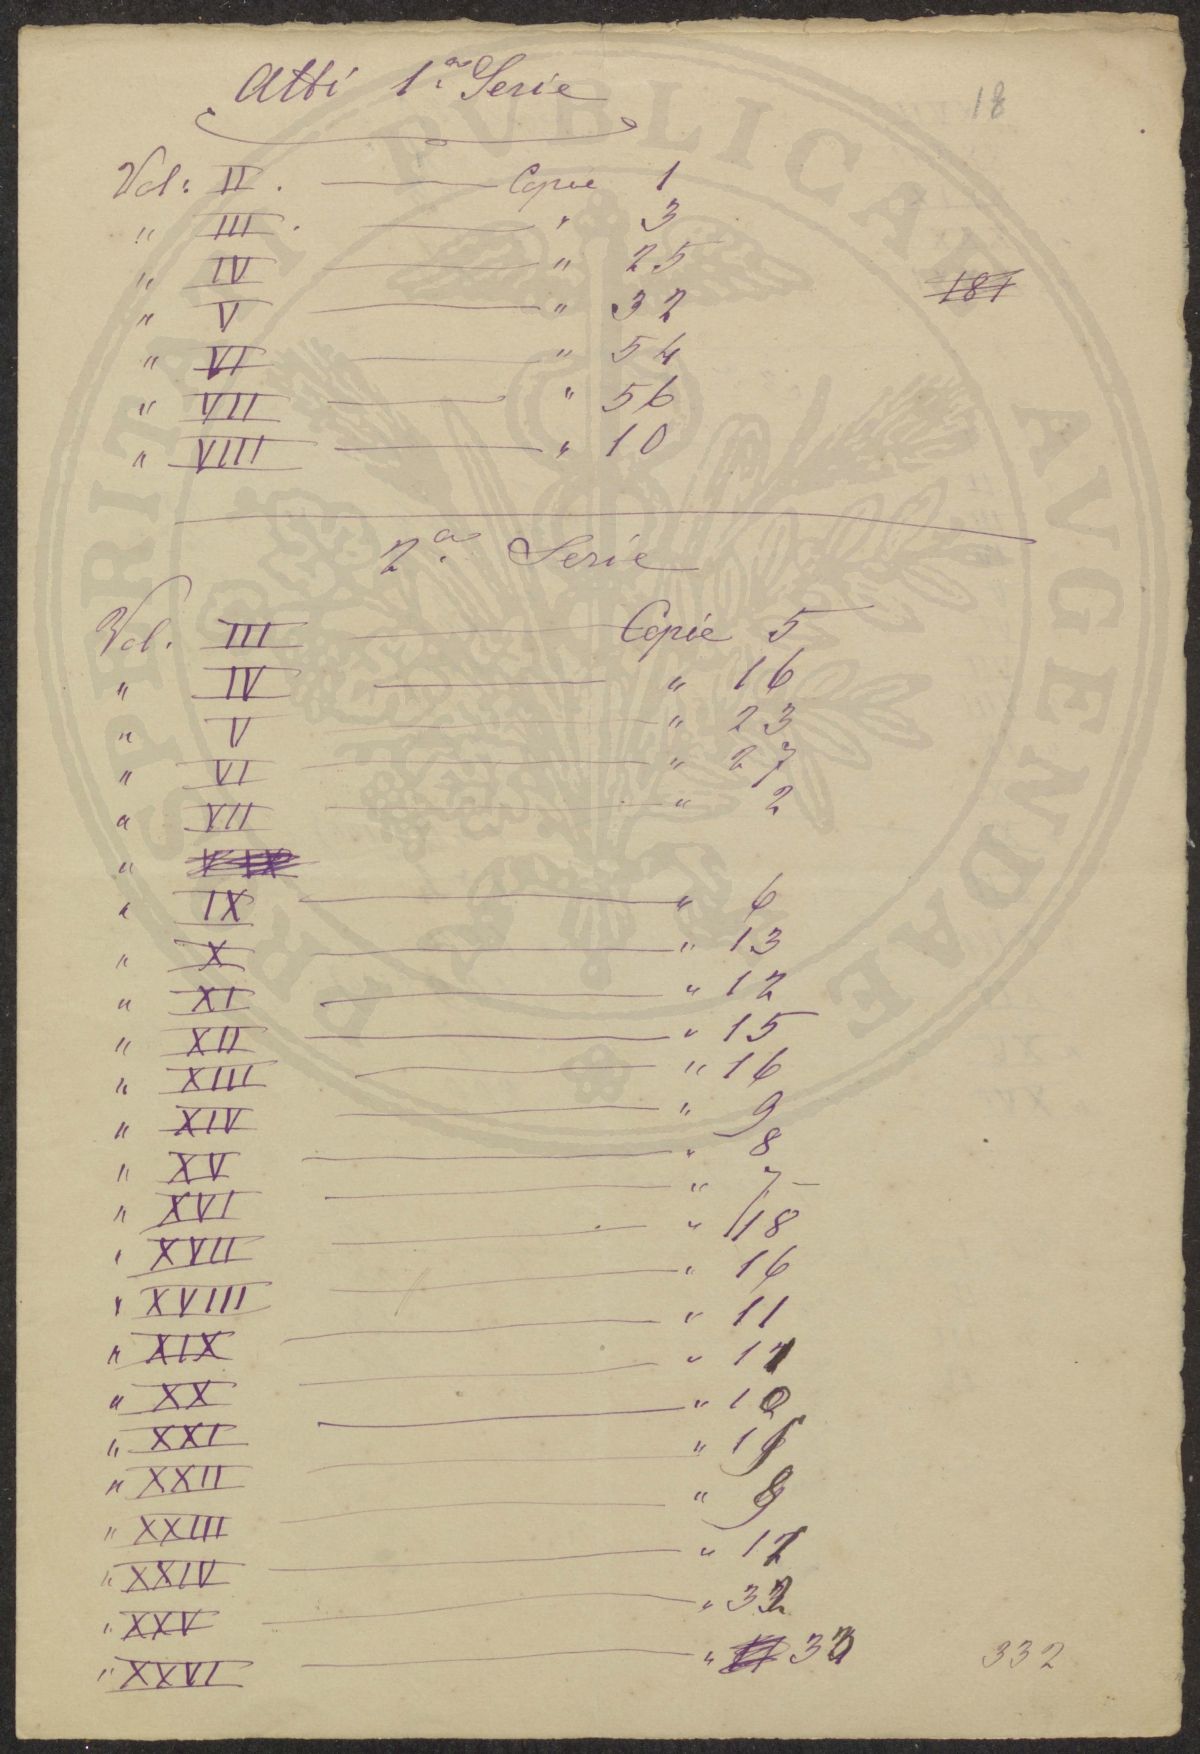 Atti 1.a Serie
18
Vol. II. Copie 1
" III. " 3
" IV " 25
181
" V " 32
" VI " 54
" VII " 56
" VIII " 10
2.a Serie
Vol. III Copie 5
" IV " 16
" V " 23
" VI " 27
" VII " 2
"
" IX " 6
" X " 13
" XI " 12
" XII " 15
" XIII " 16
" XIV " 9
" XV " 8
" XVI " 7
" XVII " 18
" XVIII " 16
" XIX " 11
" XX "
" XXI "
" XXII "
" XXIII "
" XXIV "
" XXV "
" XXVI "
332
PROSPERITATI PVBLICAE AVGENDAE